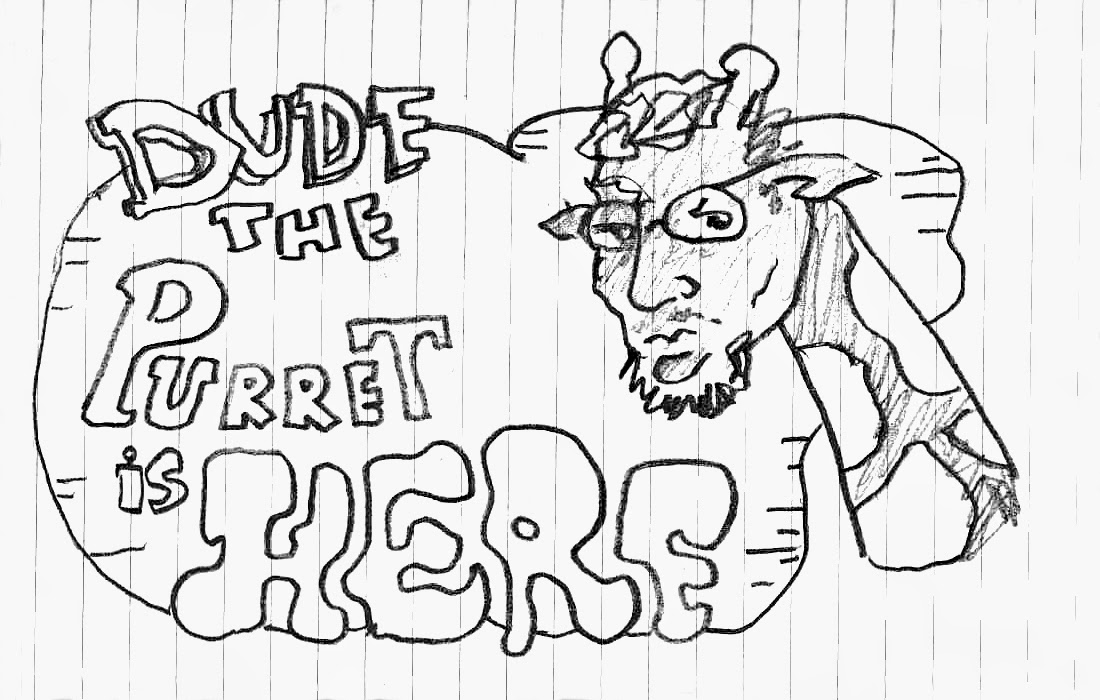 DUDE
THE
PURRET
iS
HERE